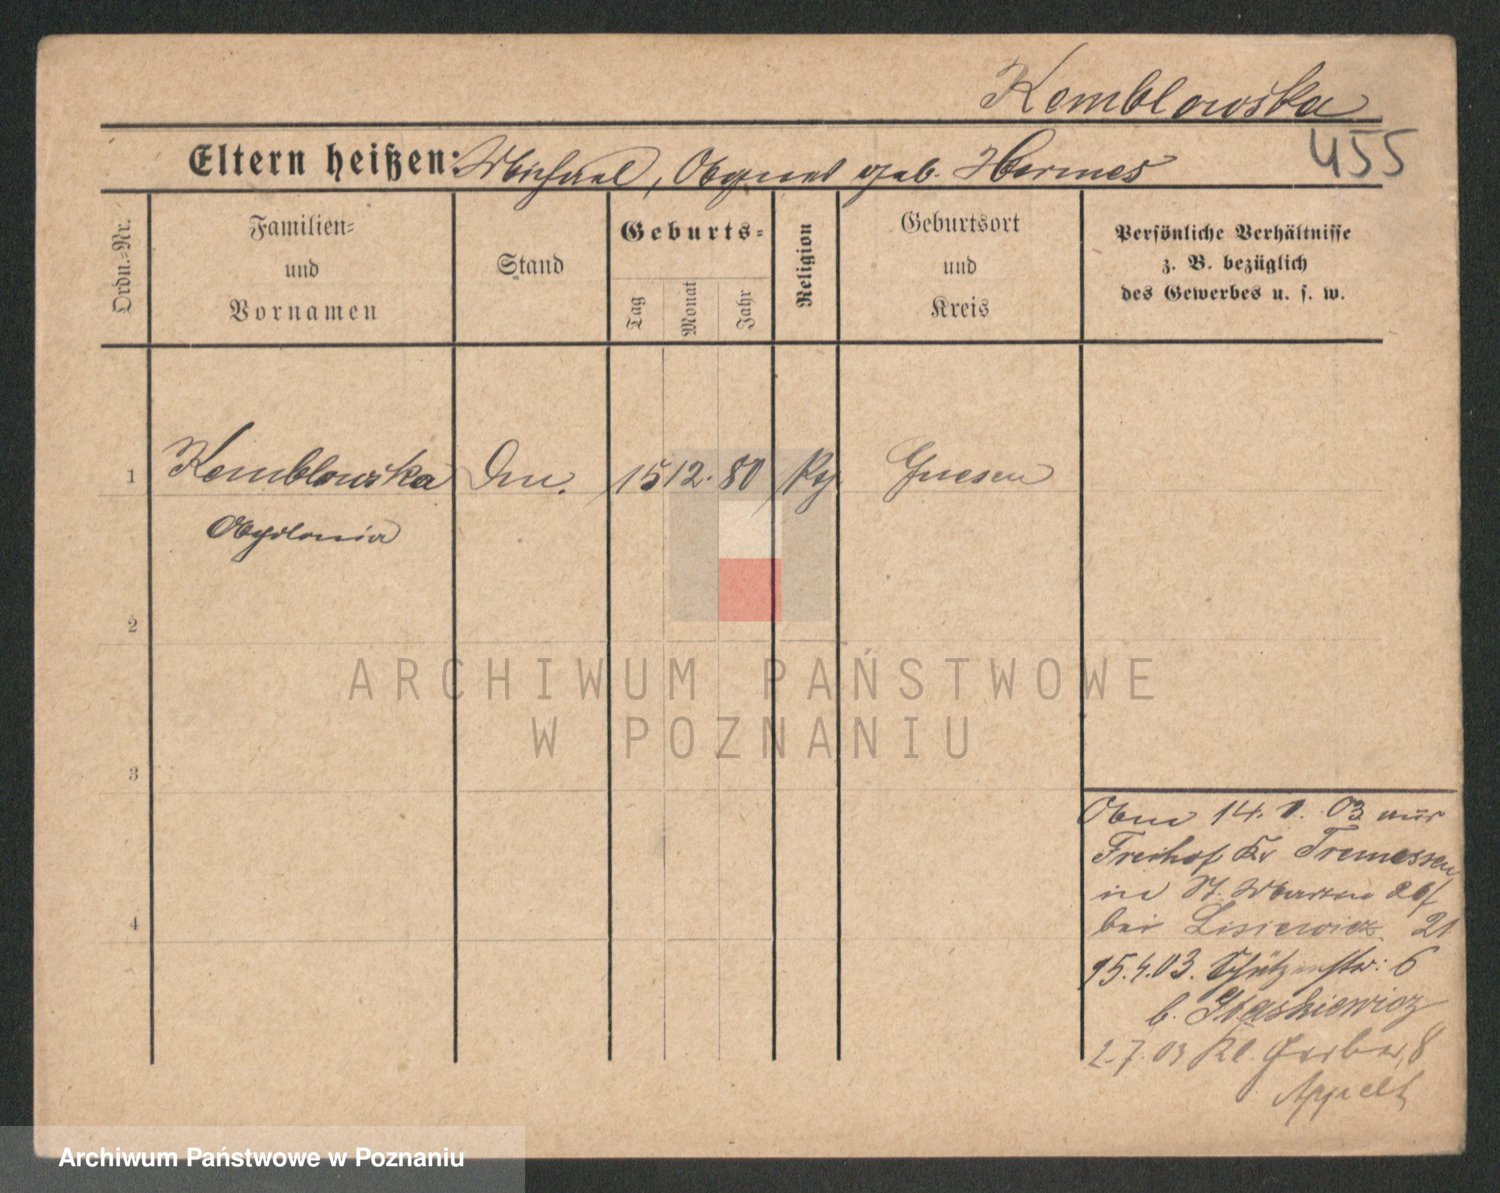 Kemblowska
455
Eltern heißen: Michael, Agnes geb. Hermes
Ordn.-Nr.
Familien-
und
Vornamen
Stand
Geburts-
Tag
Monat
Jahr
Religion
Geburtsort
und
Kreis
Persönliche Verhältnisse
z. B. bezüglich
des Gewerbes u. s. w.
1
Kemblowska
15 12. 80
Gnesen
2
3
4
14. 1. 03 aus
Freihof Kr Tremessen
in St. Martin 26/
bei Lisiewicz 21
15.4.03. Schützenstr: 6
b. Staskiewicz
2.7.03 Kl. Gerber 8
Appelt
ARCHIWUM PAŃSTWOWE
W POZNANIU
Archiwum Państwowe w Poznaniu